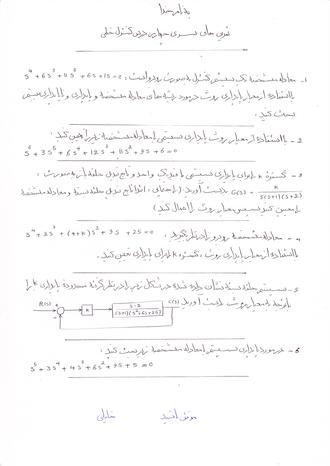 بنام خدا
تمرین های سری چهارم درس کنترل خطی
۱- معادله مشخصه یک سیستم کنترل به صورت روبرو است: s⁴+6s³+11s²+6s+15=0
با استفاده از معیار پایداری روث در مورد ریشه های معادله مشخصه و پایداری یا ناپایداری سیستم
بحث کنید.
۲- با استفاده از معیار روث پایداری سیستمی با معادله مشخصه زیر را تعیین کنید:
s⁶+3s⁵+6s⁴+12s³+11s²+9s+6=0
۳- گستره k برای پایداری سیستمی با فیدبک واحد و تابع تبدیل حلقه باز به صورت:
G(s)= k / s(s+1)(s+2) بدست آورید (راهنمایی: ابتدا تابع تبدیل حلقه بسته و معادله مشخصه
را معین کنید سپس معیار روث را اعمال کنید)
۴- معادله مشخصه روبرو را در نظر بگیرید. s⁴+2s³+(4+k)s²+9s+25=0
با استفاده از معیار پایداری روث، گستره k برای پایداری تعیین کنید.
۵- سیستم حلقه بسته نشان داده شده در شکل زیر را در نظر گرفته محدوده پایداری k را
با توجه به معیار روث بدست آورید
R(s) + - k s-2 / (s+1)(s²+6s+25) C(s)
۶- در مورد پایداری سیستمی با معادله مشخصه زیر بحث کنید:
s⁵+3s⁴+4s³+6s²+9s+5=0
موفق باشید
خلیلی